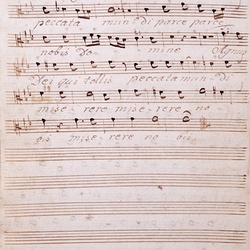 peccata mun di parce parce
nobis Do mine Agnus
Dei qui tollis peccata mun di
mise rere mise rere no
bis mise rere no bis